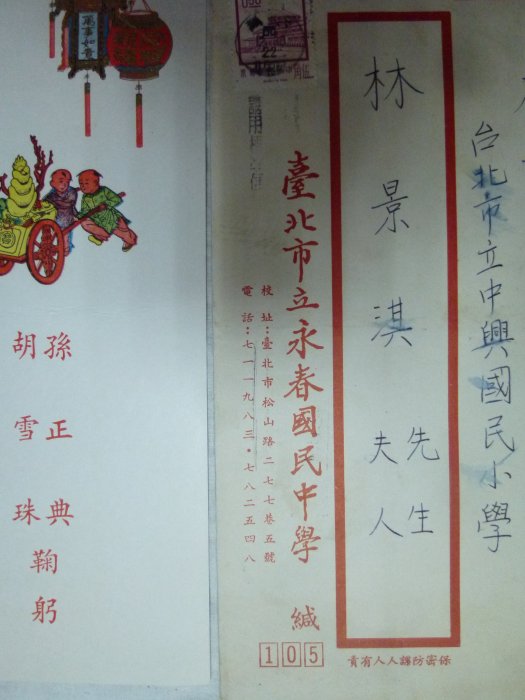 萬事如意
孫正典
胡雪珠
鞠躬
台北市立中興國民小學
林景淇
先生
夫人
臺北市立永春國民中學 緘
校址：臺北市松山路二七七巷五號
電話：七一一九八三・七八二五四八
105
保密防諜人人有責